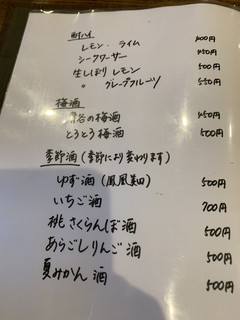 酎ハイ
レモン、ライム 400円
シークワーサー 450円
生しぼり レモン 500円
〃 グレープフルーツ 550円
梅酒
谷の梅酒 450円
とろとろ梅酒 500円
季節酒(季節により変わります)
ゆず酒(鳳凰美田) 500円
いちご酒 700円
桃さくらんぼ酒 500円
あらごしりんご酒 500円
夏みかん酒 500円